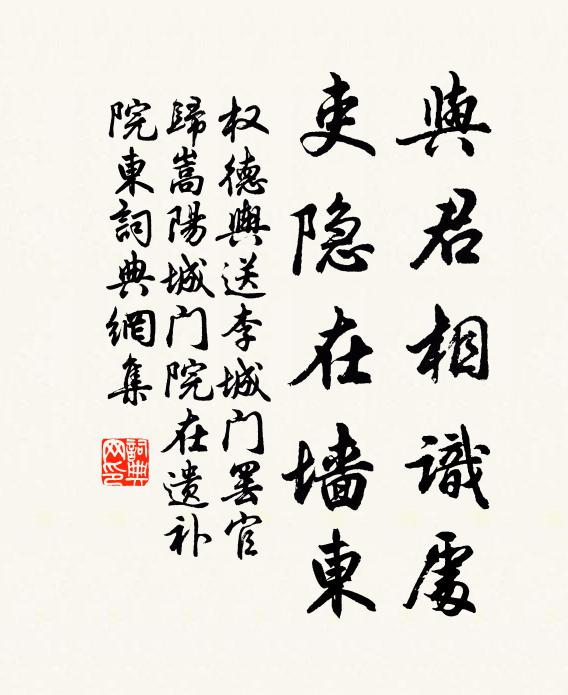 與君相識處
吏隐在墙東
权德輿送李城门罢官
歸嵩陽城门院在遗补
院東詞典網集
詞典
网印